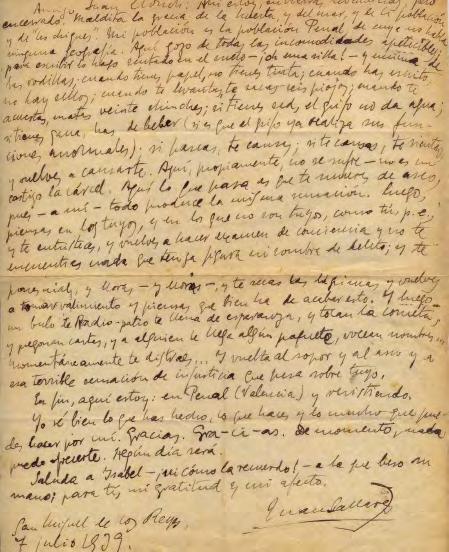 Amigo Juan Llorch: Aquí estoy, en Valencia,
encerrado. Maldita la gracia de la huerta, y del mar, y de la población
y de "los chiques". Mi población es la población Penal, de cuya no habla
ninguna geografía. Aquí gozo de todas las incomodidades apetecibles;
para escribir lo hago sentado en el suelo — ¡oh una silla! — y encima de
las rodillas; cuando tienes papel, no tienes tinta; cuando has escrito,
no hay sellos; cuando te levantas, te sacas seis piojos; cuando te
acuestas, matas veinte chinches; si tienes sed, el grifo no da agua;
si tienes gana, has de beber (si es que el grifo ya realiza sus fun-
ciones anormales); si paseas, te cansas; si te cansas, te sientas,
y vuelves a cansarte. Aquí, propiamente, no se sufre — no es un
castigo la cárcel. Aquí lo que pasa es que te mueres de asco,
pues — a mí — todo produce la misma sensación. Luego,
piensas en los tuyos, y en los que no son tuyos, como tú, p.e.,
y te entristeces, y vuelves a hacer examen de conciencia y no te
encuentras nada que tenga figura ni nombre de delito; y te
pones triste, y lloras — y lloras —, y te secas las lágrimas y vuelves
a tomar valimiento y piensas que bien ha de acabar esto. Y luego
un bulo te Radio-patio te llena de esperanza, y tocan la corneta
y pregonan cartas, y a alguien le llega algún paquete, vocean nombres...
momentáneamente te distraes... Y vuelta al sopor y al asco y a
esa terrible sensación de injusticia que pesa sobre tuyo.
En fin, aquí estoy: en Penal (Valencia) y resistiendo.
Yo sé bien lo que has hecho, lo que haces y lo mucho que pue-
des hacer por mí. Gracias. Gra-ci-as. De momento, nada
puedo ofrecerte. Algún día será.
Saluda a Isabel — ¡ni cómo la recuerdo! — a la que beso su
mano; para ti mi gratitud y mi afecto.
San Miguel de los Reyes,
7 julio 1939.